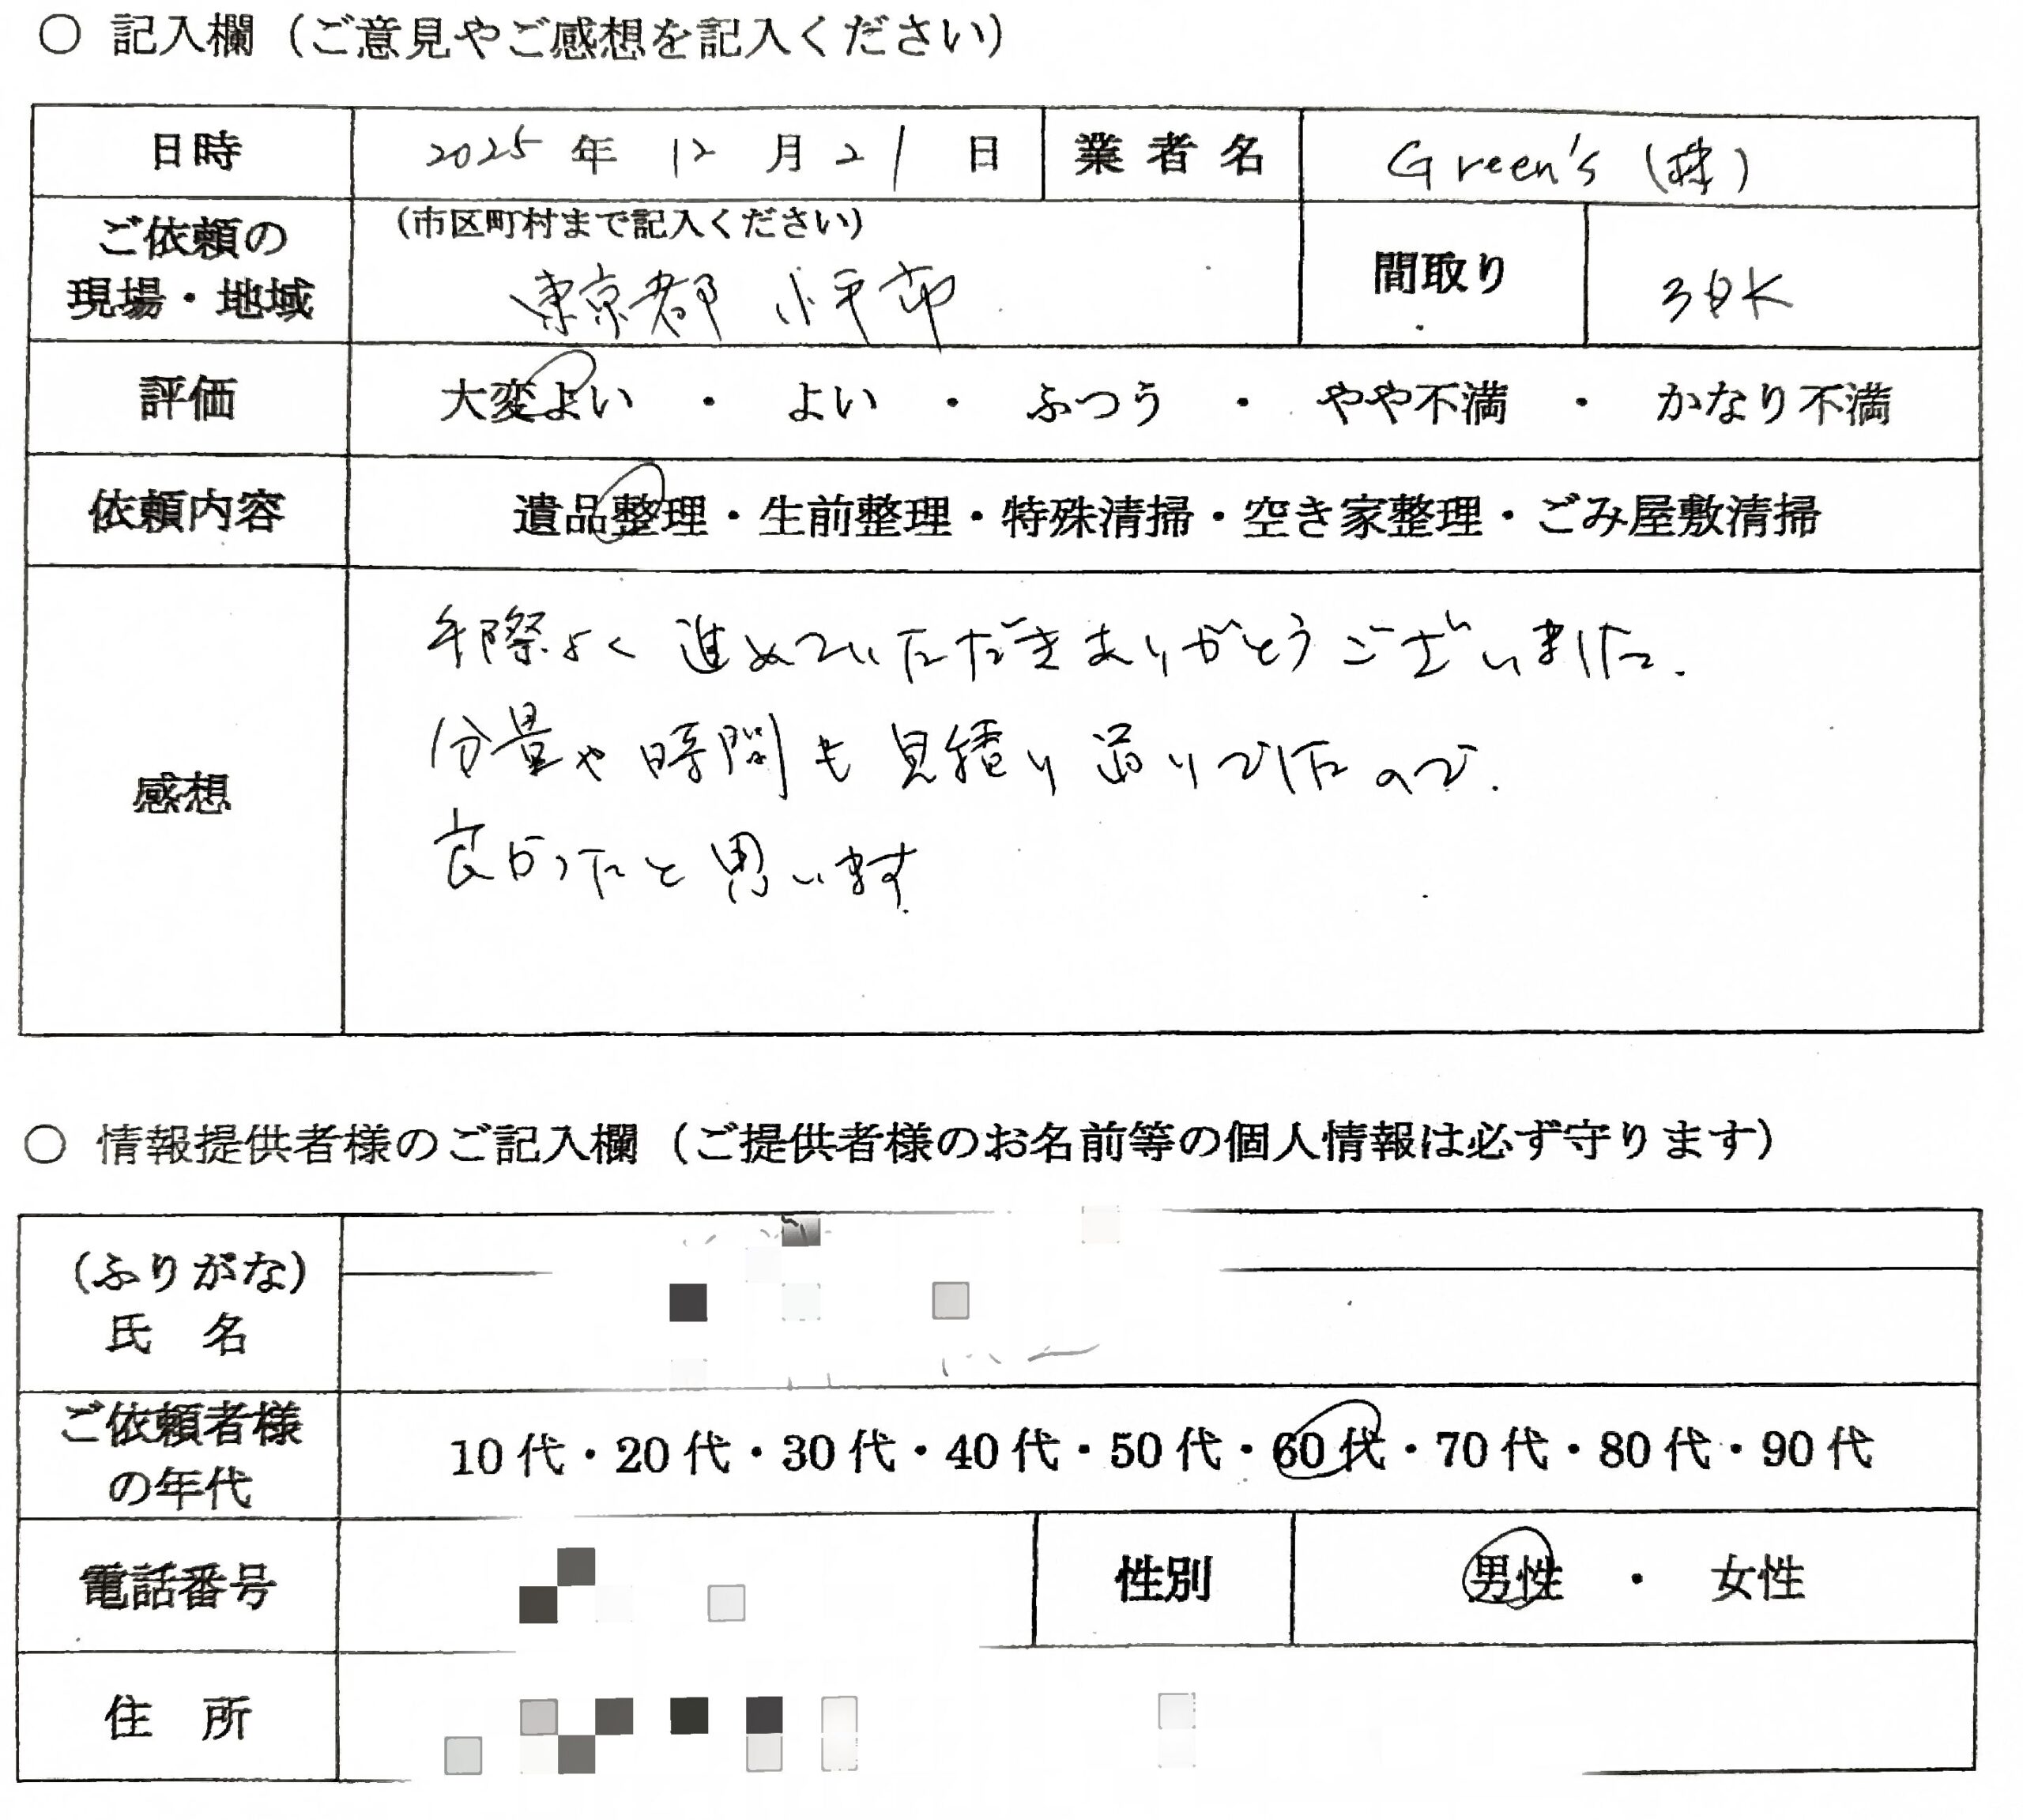 ○ 記入欄（ご意見やご感想を記入ください）
日時 2025年 12月21日 業者名 Green's (株)
ご依頼の現場・地域 (市区町村まで記入ください) 東京都 小平市 間取り 3DK
評価 大変よい ・ よい ・ ふつう ・ やや不満 ・ かなり不満
依頼内容 遺品整理・生前整理・特殊清掃・空き家整理・ごみ屋敷清掃
感想
手際よく進めていただきありがとうございました。
分量や時間も見積り通りでしたので、
良かったと思います
○ 情報提供者様のご記入欄（ご提供者様のお名前等の個人情報は必ず守ります）
(ふりがな)
氏 名
ご依頼者様の年代 10代・20代・30代・40代・50代・60代・70代・80代・90代
電話番号 性別 男性 ・ 女性
住 所